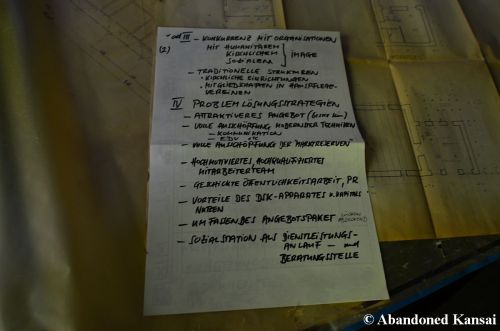 III - KONKURRENZ MIT ORGANISATIONEN
(2) MIT HUMANITÄREM
KIRCHLICHEM } IMAGE
SOZIALEM
- TRADITIONELLE STRUKTUREN
• KIRCHLICHE EINRICHTUNGEN
• MITGLIEDSCHAFTEN IN HAUSPFLEGE-
VEREINEN
IV PROBLEMLÖSUNGSSTRATEGIEN
- ATTRAKTIVERES ANGEBOT
- VOLLE AUSSCHÖPFUNG MODERNSTER TECHNIKEN
- KOMMUNIKATION
- EDV etc
- VOLLE AUSSCHÖPFUNG DER MARKTRESERVEN
- HOCHMOTIVIERTES, HOCHQUALIFIZIERTES
MITARBEITERTEAM
- GESCHICKTE ÖFFENTLICHKEITSARBEIT, PR
- VORTEILE DES DSK-APPARATES U. KAPITALS
NUTZEN
- UMFASSENDES ANGEBOTSPAKET
- SOZIALSTATION ALS DIENSTLEISTUNGS-
ANLAUF- und
BERATUNGSSTELLE
© Abandoned Kansai